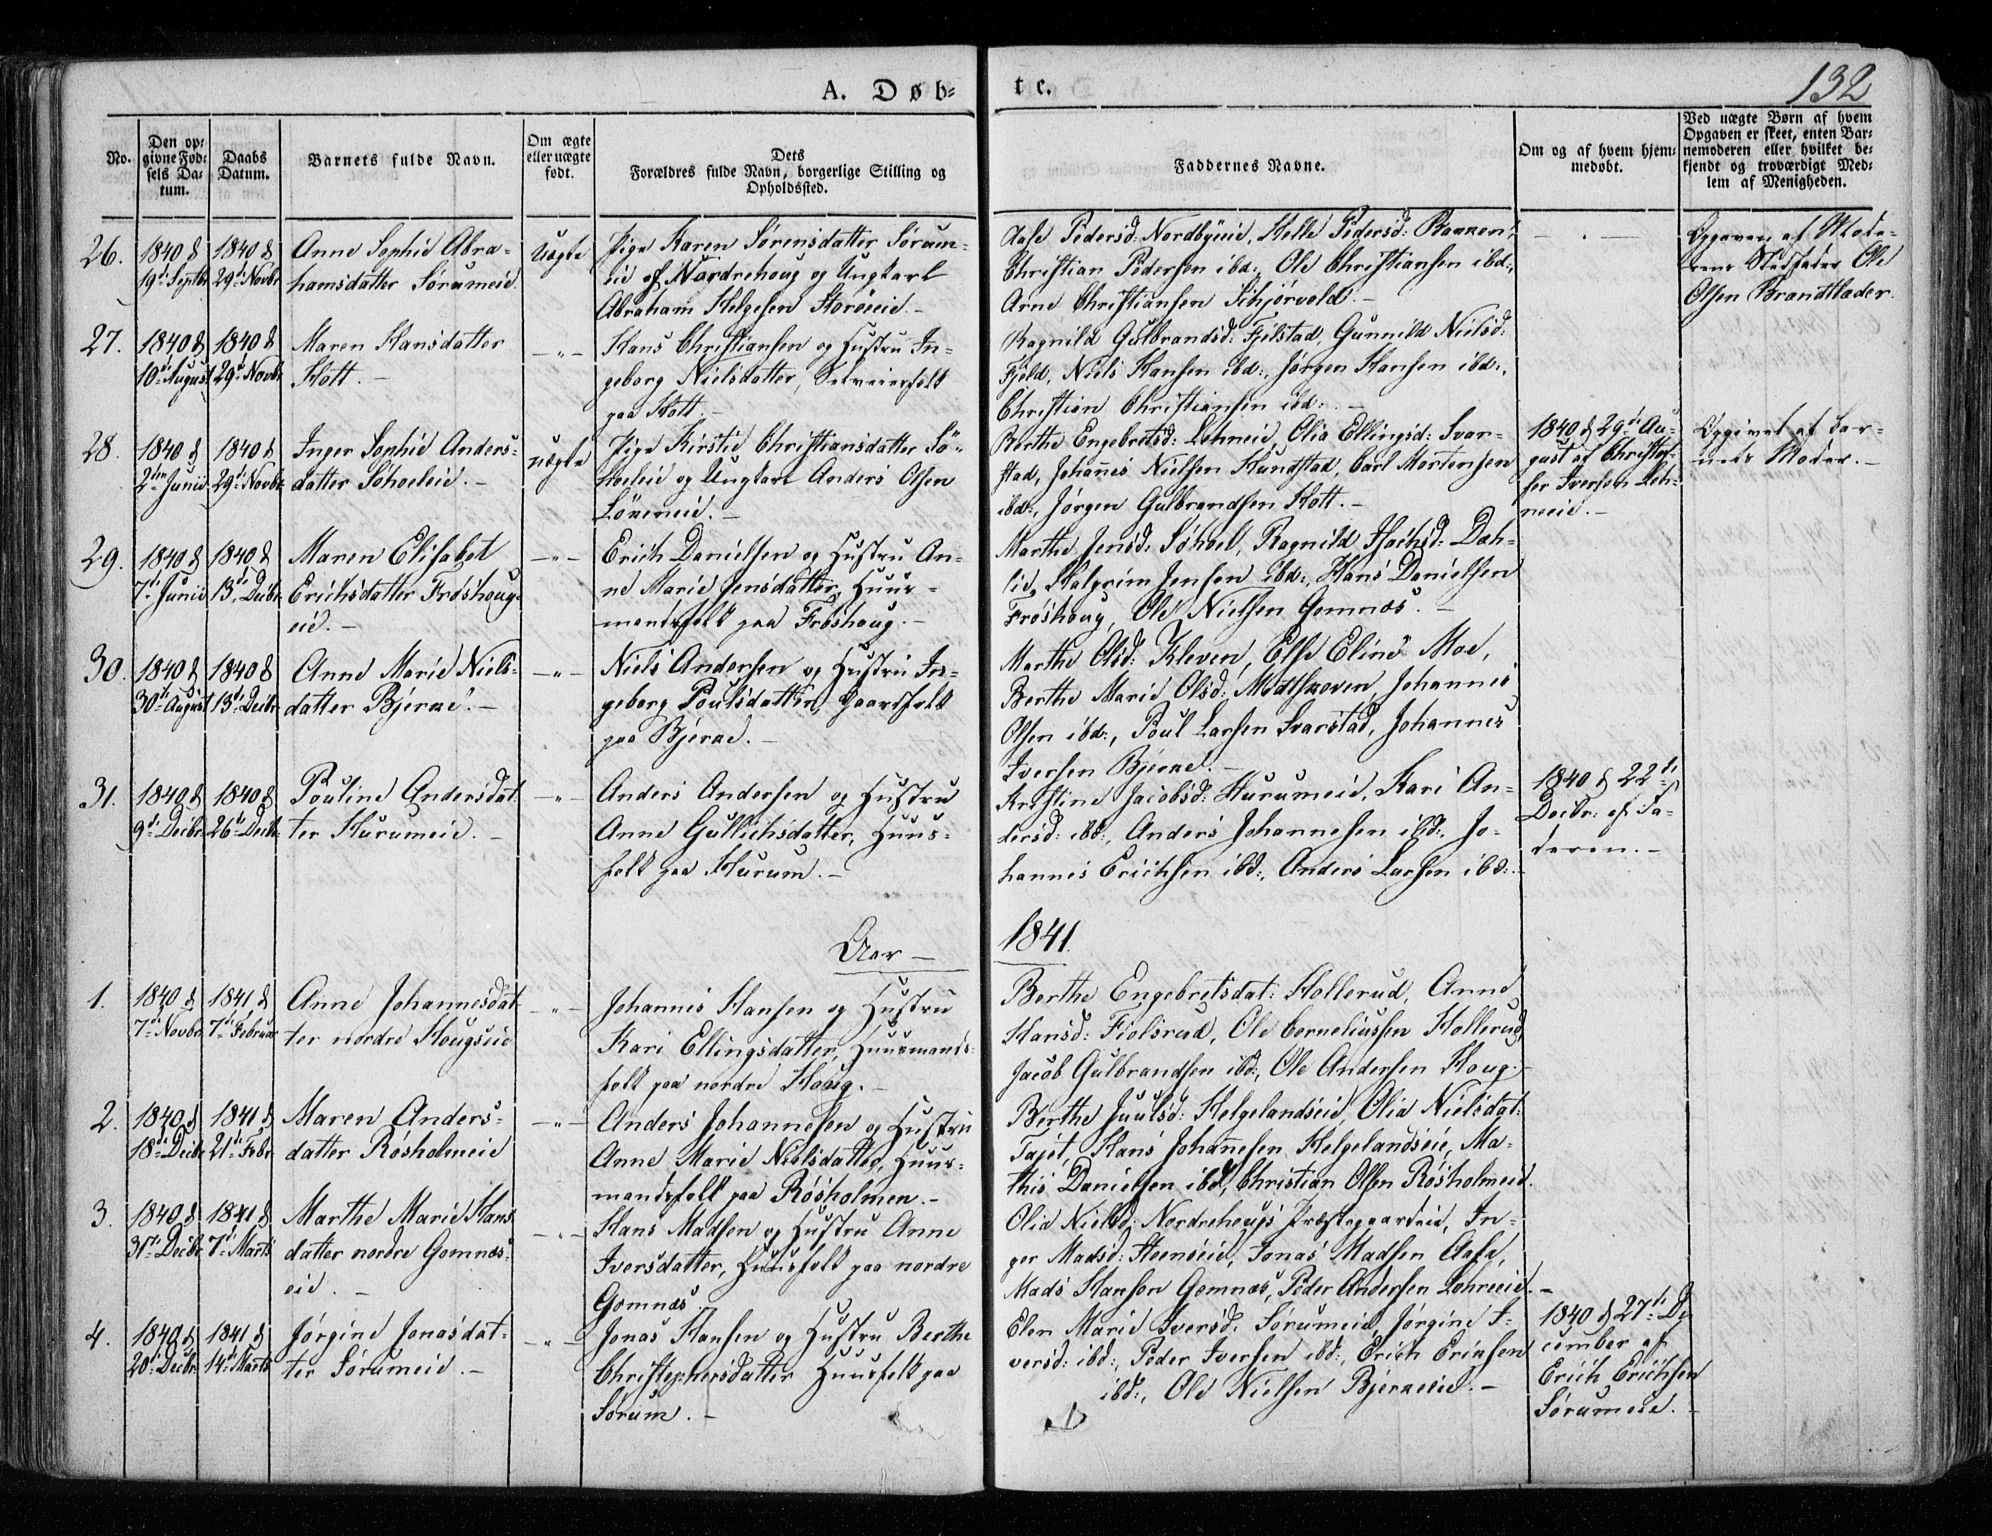 132
A. Døb-
te.
No.
Den op-
givne Fød-
sels Da-
tum.
Daabs
Datum.
Barnets fulde Navn.
Om ægte
eller uægte
født.
Dets
Forældres fulde Navn, borgerlige Stilling og
Opholdssted.
Faddernes Navne.
Om og af hvem hjem-
medøbt.
Ved uægte Børn af hvem
Opgaven er skeet, enten Bar-
nemoderen eller hvilket be-
kjendt og troværdigt Med-
lem af Menigheden.
26.
1840 d
19d: Septbr
1840 d
29d: Novbr
Anne Sophie Abra-
hamsdatter Sørumeie
Uægte
Pige Karen Sørensdatter Sørum-
eie af Nordrehoug og Ungkarl
Abraham Helgesen Storøeie. -
Aase Pedersd: Nordbyeie, Helle Pedersd:
Christian Pedersen ibd:, Ole Christiansen ibd:,
Arne Christiansen Schjørvold. -
- . -
Opgaven af Mode-
rens Stedfader Ole
Olsen Brandtlader.
27.
1840 d
10d: August
1840 d
29d: Novbr
Maren Hansdatter
Hott. -
- " -
Hans Christiansen og Hustru In-
geborg Nielsdatter, Selveierfolk
paa Hott. -
Ragnild Gulbrandsd: Fjelstad, Gunnild Nielsd:
Fjeld, Niels Hansen ibd:, Jørgen Hansen ibd:,
Christian Christiansen ibd: -
28.
1840 d
2den Junii
1840 d
29d: Novbr
Inger Sophie Anders-
datter Søhoeleie. -
uægte
Pige Kirstie Christiansdatter Sø-
hoeleie og Ungkarl Anders Olsen
Lönereie. -
Berthe Engebretsd: Lehneie, Olia Ellingsd: Svar-
stad, Johannes Nielsen Hundstad, Carl Mortensen
ibd:, Jørgen Gulbrandsen Hott. -
1840 d 29d Au-
gust af Christof-
fer Iversen Leh-
neeie. -
Opgivet af Bar-
nets Moder. -
29.
1840 d
7d: Junii
1840 d
13d: Decbr
Maren Elisabet
Erichsdatter Frøshoug-
eie. -
- " -
Erich Danielsen og Hustru An-
ne Marie Jensdatter, Huus-
mandsfolk paa Frøshoug. -
Marthe Jensd: Søhoel, Ragnild Isachsd: Dæh-
lie, Halgrim Jensen ibd:, Hans Danielsen
Frøshoug, Ole Nielsen Gomnæs. -
30.
1840 d
30d: August
1840 d
13d: Decbr
Anne Marie Niels-
datter Bjerne. -
- " -
Niels Andersen og Hustru In-
geborg Poulsdatter, Gaardfolk
paa Bjerne. -
Marthe Olsd: Kleven, Else Eline Moe,
Berthe Marie Olsd: Modtskoven, Johannes
Olsen ibd:, Poul Larsen Svarstad, Johannes
Iversen Bjerne. -
31.
1840 d
9d: Decbr
1840 d
26d: Decbr
Pouline Andersdat-
ter Hurumeie. -
- " -
Anders Andersen og Hustru
Anne Gullichsdatter, Huus-
folk paa Hurum. -
Kristine Jacobsd: Hurumeie, Kari An-
dersd: ibd:, Anders Johannesen ibd:, Jo-
hannes Erichsen ibd:, Anders Larsen ibd:. -
1840 d 22d:
Decbr: af Fa-
deren. -
Aar -
1841.
1.
1840 d
7d: Novbr
1841 d
7d: Februar
Anne Johannesdat-
ter nordre Hougseie
- " -
Johannes Hansen og Hustru
Kari Ellingsdatter, Huusmands-
folk paa nordre Houg. -
Berthe Engebretsdat: Hollerud, Anne
Hansd: Fiolsrud, Ole Corneliussen Hollerud,
Jacob Gulbrandsen ibd:, Ole Andersen Houg. -
2.
1840 d
18d: Decbr
1841 d
21d: Febr
Maren Anders-
datter Røsholmeie
- " -
Anders Johannesen og Hustru
Anne Marie Nielsdatter, Huus-
mandsfolk paa Røsholmen. -
Berthe Juulsd: Helgelandseie, Olia Nielsdat:
Tajet, Hans Johannesen Helgelandseie, Ma-
this Danielsen ibd:, Christian Olsen Røsholmeie.
3.
1840 d
31d: Decbr
1841 d
7d: Marts
Marthe Marie Hans-
datter nordre Gomnæs-
eie. -
- " -
Hans Madsen og Hustru Anne
Iversdatter, Huusfolk paa nordre
Gomnæs.
Olia Nielsd: Nordrehougs Præstegaardeie, In-
ger Madsd: Steenseie, Jonas Madsen Aasa,
Mads Hansen Gomnæs, Peder Andersen Lehneeie. -
4.
1840 d
20d: Decbr
1841 d
14d: Marts
Jørgine Jonasdat-
ter Sørumeie. -
- " -
Jonas Hansen og Hustru Berthe
Christophersdatter Huusfolk paa
Sørum. -
Elen Marie Iversd: Sørumeie, Jørgine I-
versd: ibd:, Peder Iversen ibd:, Erich Erichsen
ibd:, Ole Nielsen Bjerneeie. -
1840 d 27d: De-
cember af
Erich Erichsen
Sørumeie. -